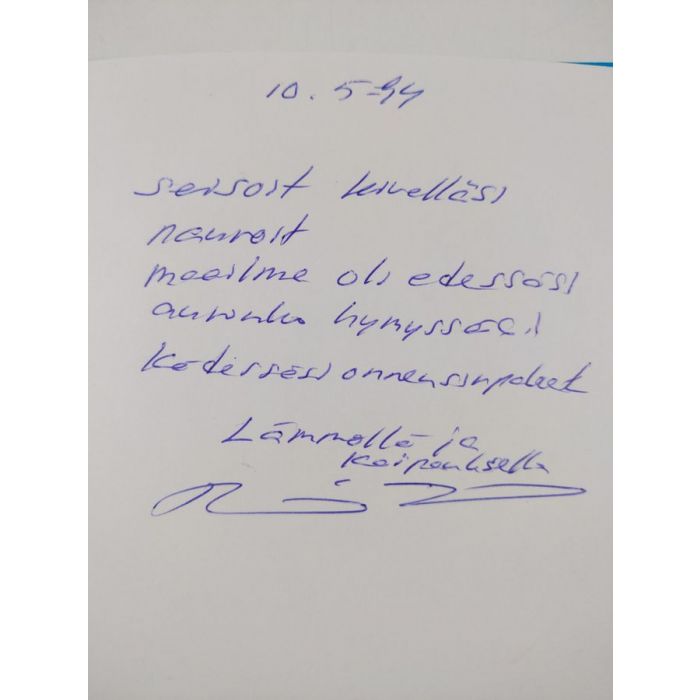 10.5-94
seisoit kivelläsi
nauroit
maailma oli edessäsi
aurinko hymyssäsi
Kädessäsi onnensirpaleet
Lämmöllä ja
Kaipauksella